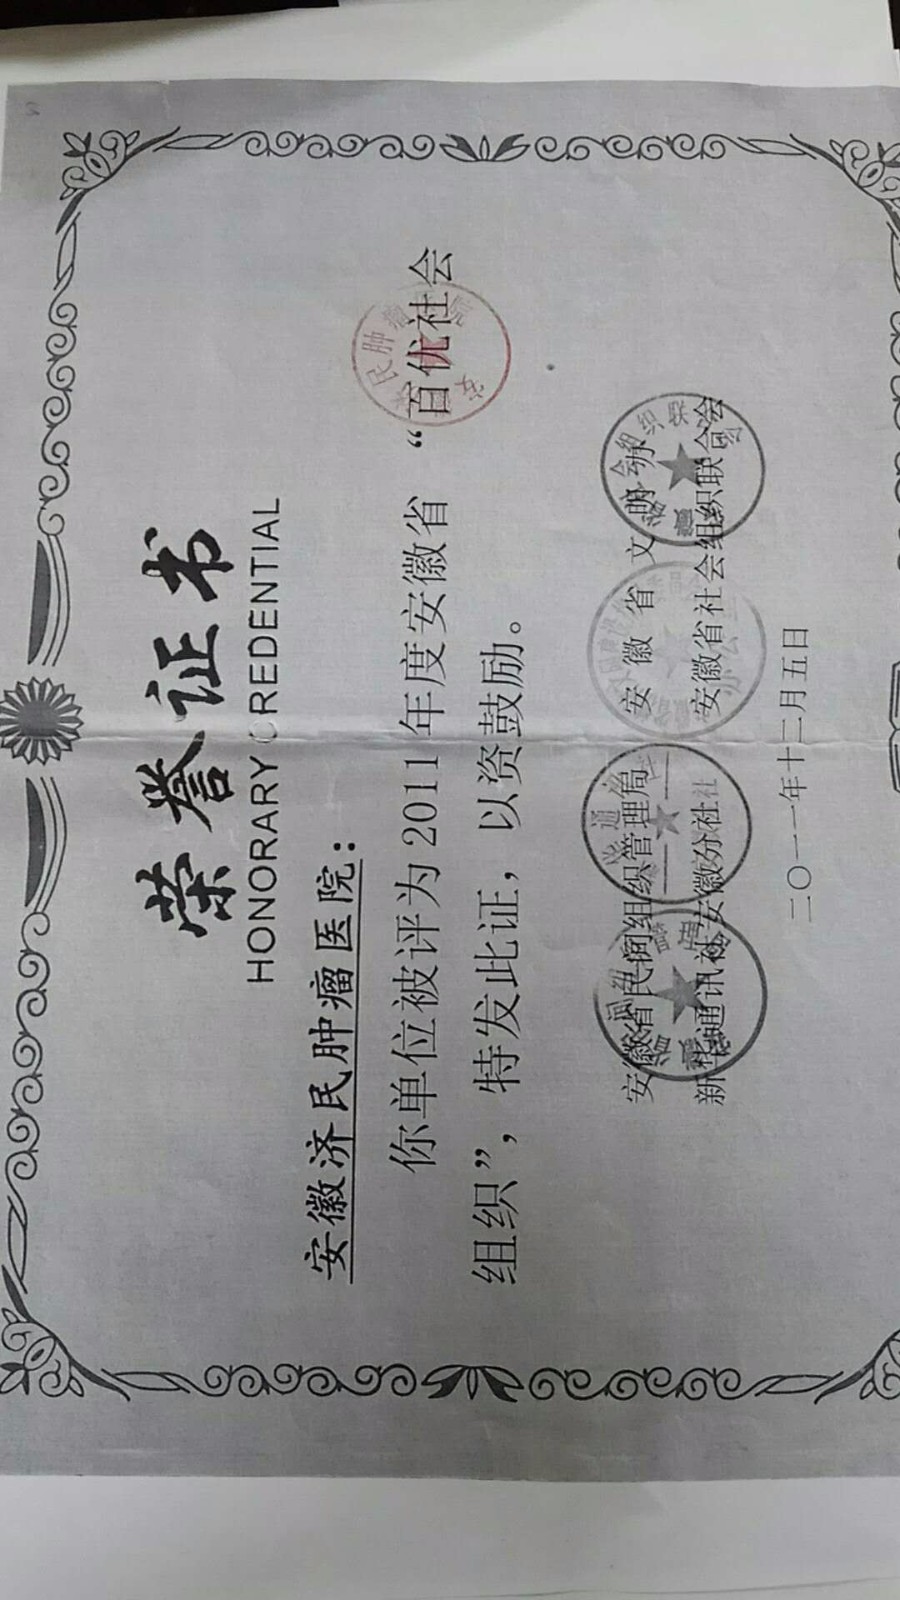 荣誉证书
HONORARY CREDENTIAL
安徽济民肿瘤医院：
你单位被评为2011年度安徽省“百优社会
组织”，特发此证，以资鼓励。
安徽省民间组织管理局 安徽省文明办
新华通讯社安徽分社 安徽省社会组织联合会
二〇一一年十二月五日